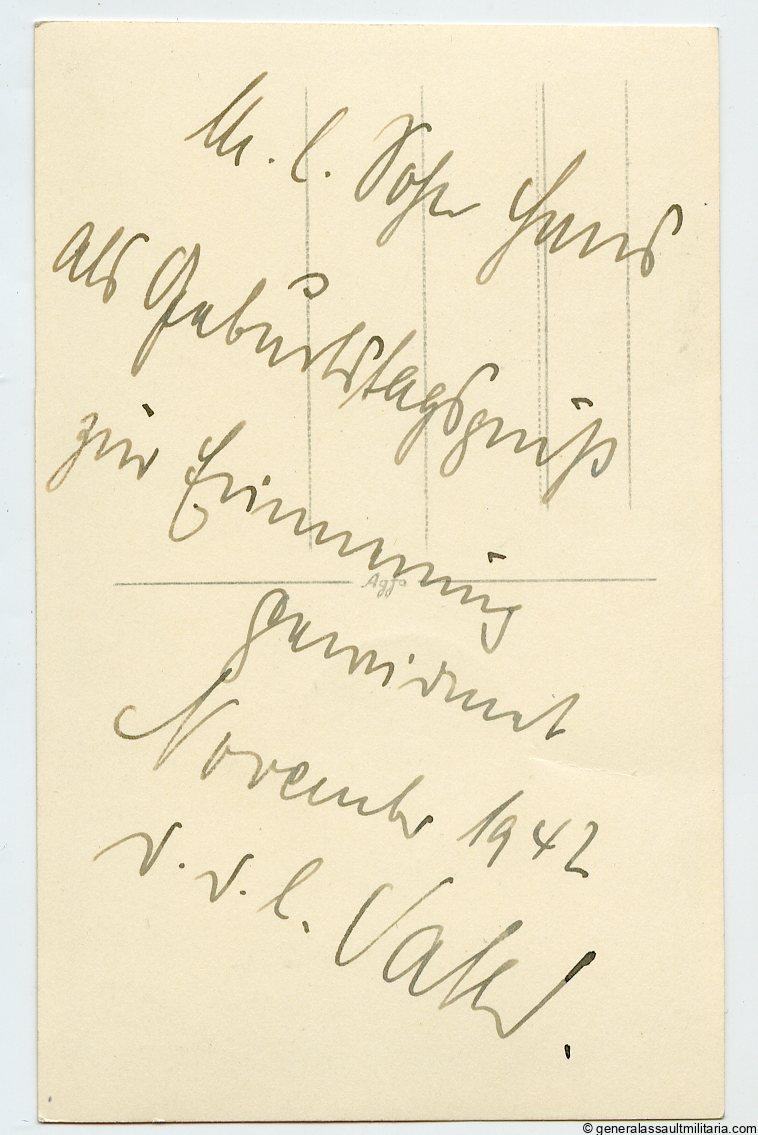 M. l. Sohn Hans
als Geburtstagsgruß
zur Erinnerung
Agfa
gewidmet
November 1942
v. d. l. Vater.
© generalassaultmilitaria.com